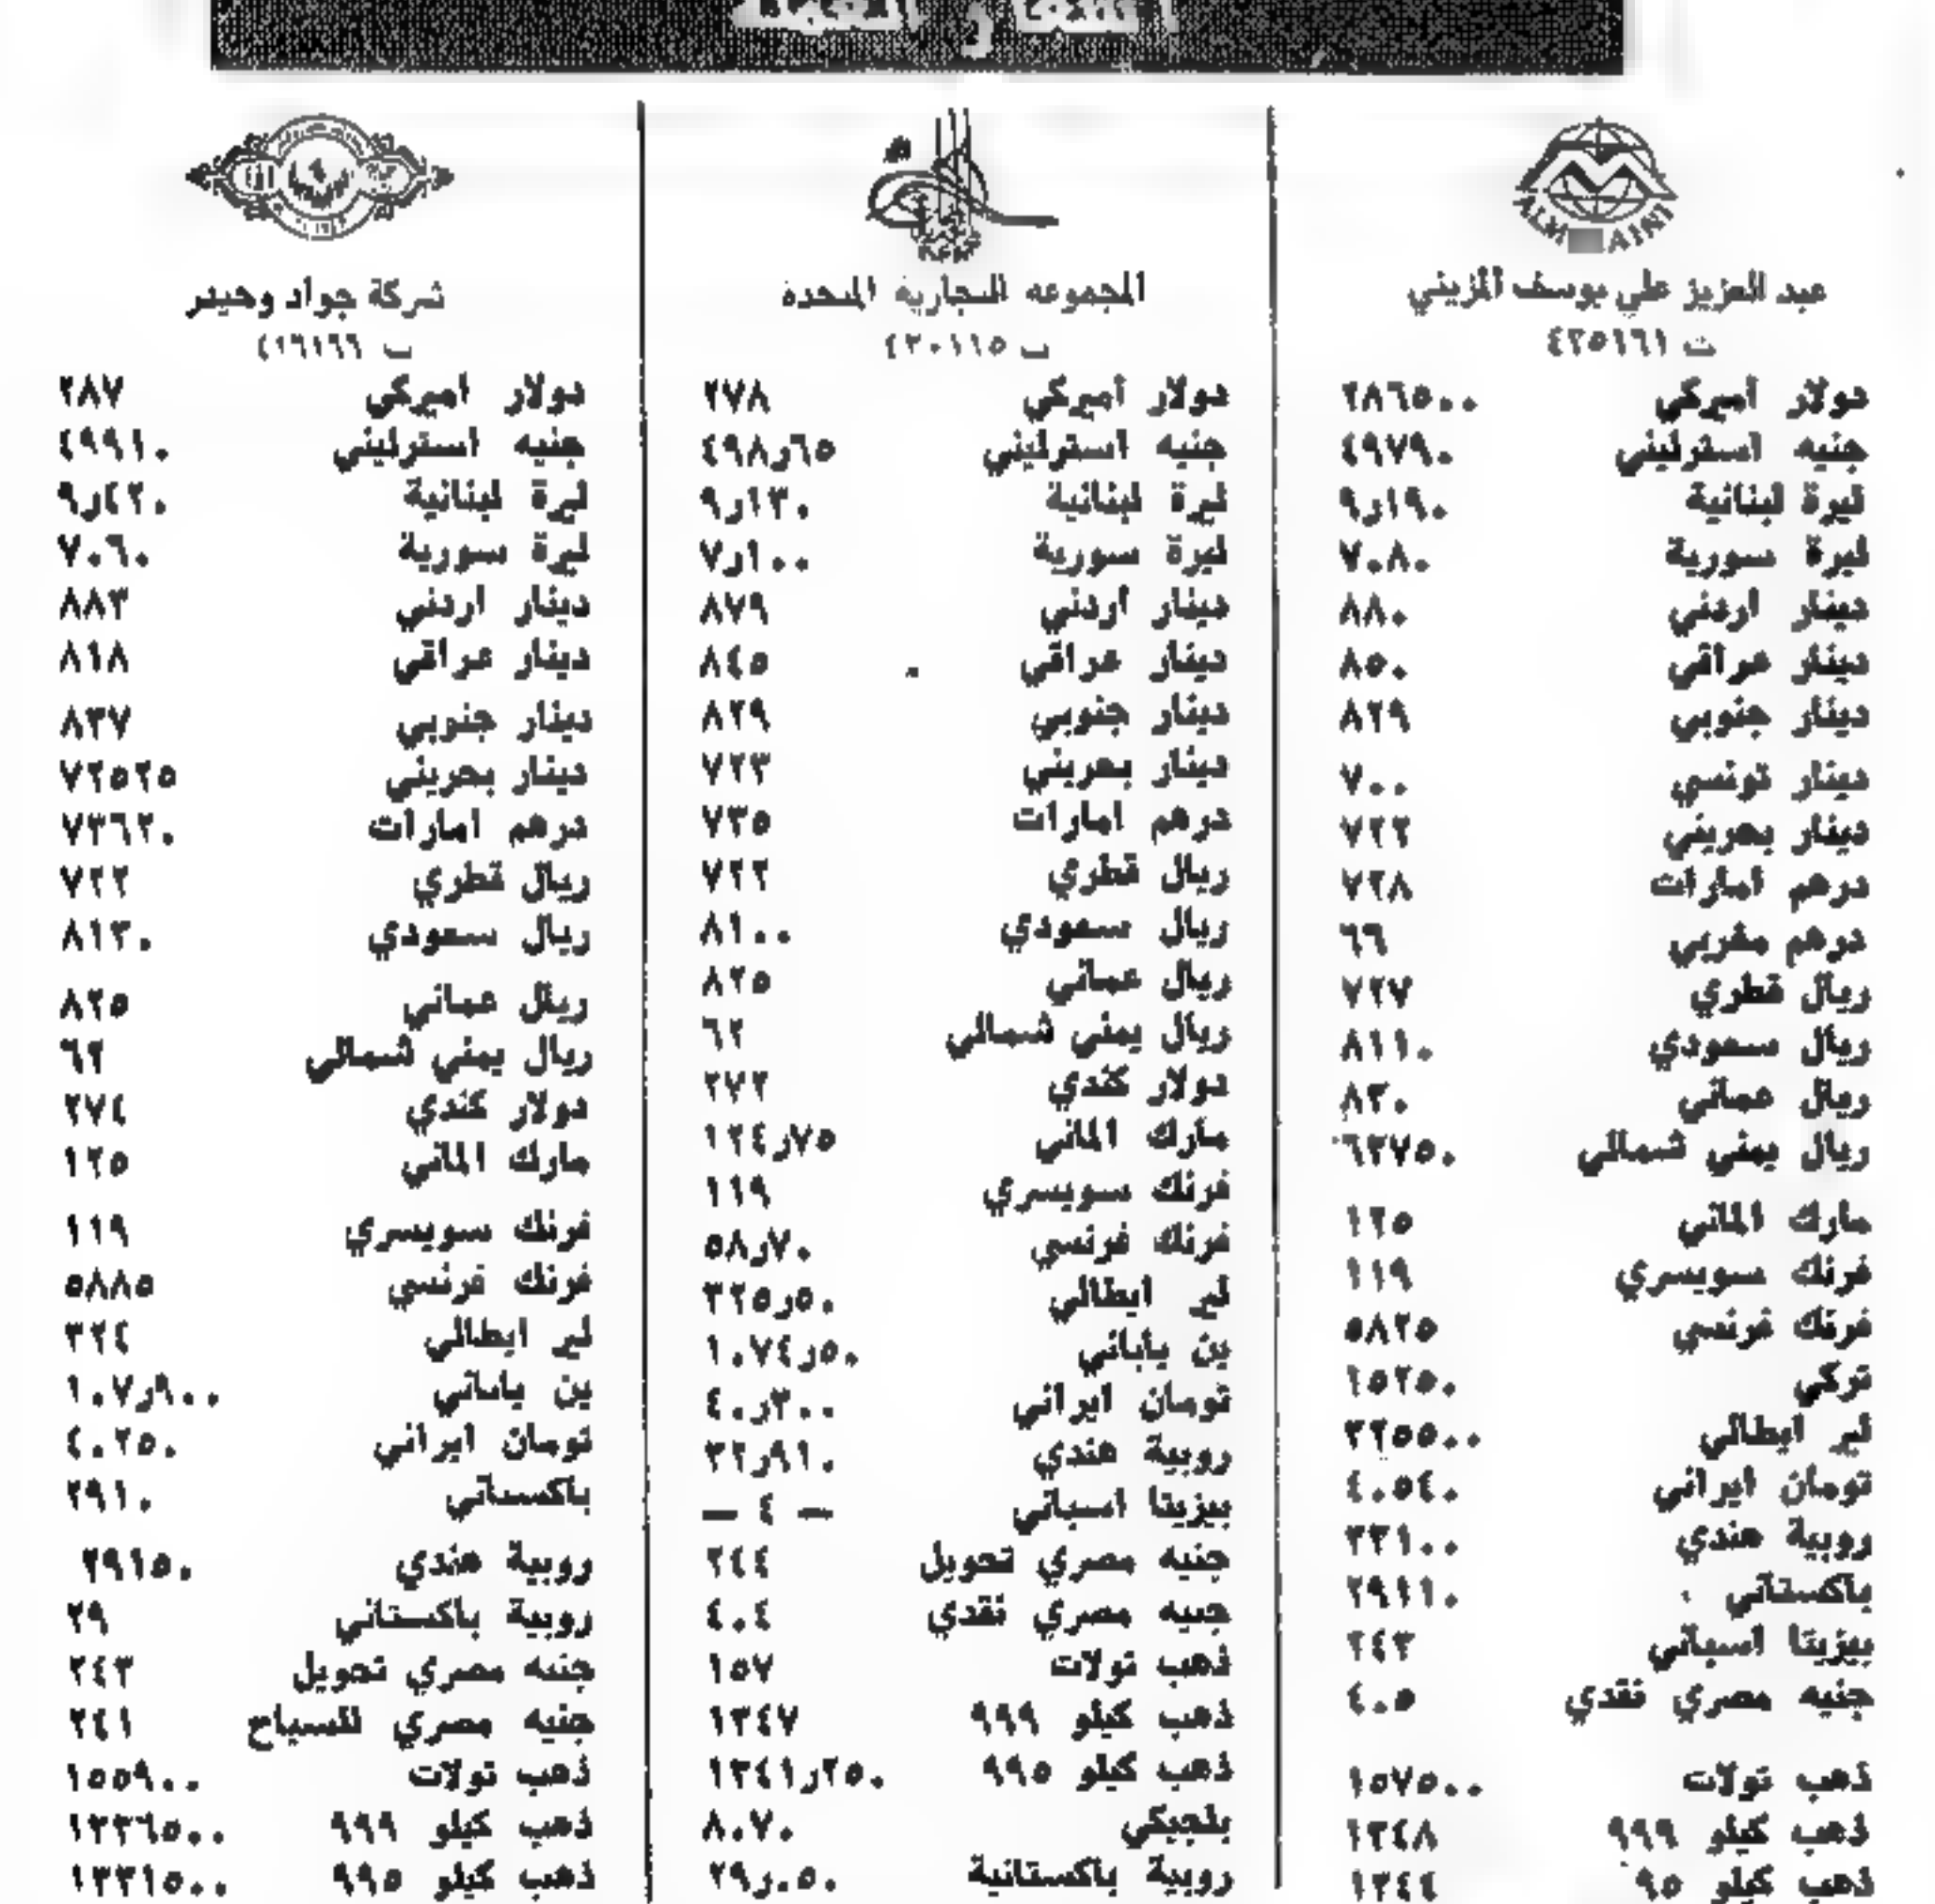 عبد العزيز علي يوسف المزيني
ت ٤٢٥١٦١
دولار أميركي ٢٨٦٥٠٠
جنيه استرليني ٤٩٧٩٠
ليرة لبنانية ٩٫١٩٠
ليرة سورية ٧٠٨٠
دينار اردني ٨٨٠
دينار عراقي ٨٥٠
دينار جنوبي ٨٢٩
دينار تونسي ٧٠٠
دينار بحريني ٧٢٢
درهم امارات ٧٢٨
درهم مغربي ٦٦
ريال قطري ٧٢٧
ريال سعودي ٨١١٠
ريال عماني ٨٣٠
ريال يمني شمالي ٦٢٧٥٠
مارك الماني ١٢٥
فرنك سويسري ١١٩
فرنك فرنسي ٥٨٢٥
تركي ١٥٢٥٠
لير ايطالي ٣٢٥٥٠٠
تومان ايراني ٤٠٥٤٠
روبية هندي ٣٣١٠٠
باكستاني ٢٩١١٠
بيزيتا اسباني ٢٤٣
جنيه مصري نقدي ٤٠٥
ذهب تولات ١٥٧٥٠٠
ذهب كيلو ٩٩٩ ١٣٤٨
ذهب كيلو ٩٥ ١٣٤٤
المجموعه التجارية المتحدة
ت ٤٢٠١١٥
دولار أميركي ٢٧٨
جنيه استرليني ٤٩٨٫٦٥
ليرة لبنانية ٩٫١٣٠
ليرة سورية ٧٫١٠٠
دينار أردني ٨٧٩
دينار عراقي ٨٤٥
دينار جنوبي ٨٢٩
دينار بحريني ٧٢٣
درهم امارات ٧٣٥
ريال قطري ٧٢٢
ريال سعودي ٨١٠٠
ريال عماني ٨٢٥
ريال يمني شمالي ٦٢
دولار كندي ٢٧٢
مارك الماني ١٢٤٫٧٥
فرنك سويسري ١١٩
فرنك فرنسي ٥٨٫٧٠
لير ايطالي ٣٢٥٫٥٠
ين ياباني ١٠٧٤٫٥٠
تومان ايراني ٤٠٫٣٠٠
روبية هندي ٣٢٫٩١٠
بيزيتا اسباني — ٤ —
جنيه مصري تحويل ٢٤٤
جنيه مصري نقدي ٤٠٤
ذهب تولات ١٥٧
ذهب كيلو ٩٩٩ ١٣٤٧
ذهب كيلو ٩٩٥ ١٣٤١٫٢٥٠
بلجيكي ٨٠٧٠
روبية باكستانية ٢٩٫٠٥٠
شركة جواد وحيدر
ت ٤١٦١٦٦
دولار اميركي ٢٨٧
جنيه استرليني ٤٩٩١٠
ليرة لبنانية ٩٫٤٢٠
ليرة سورية ٧٠٦٠
دينار اردني ٨٨٣
دينار عراقي ٨١٨
دينار جنوبي ٨٣٧
دينار بحريني ٧٢٥٢٥
درهم امارات ٧٣٦٢٠
ريال قطري ٧٢٢
ريال سعودي ٨١٣٠
ريال عماني ٨٢٥
ريال يمني شمالي ٦٢
دولار كندي ٢٧٤
مارك الماني ١٢٥
فرنك سويسري ١١٩
فرنك فرنسي ٥٨٨٥
لير ايطالي ٣٢٤
ين ياباني ١٠٧٫٩٠٠
تومان ايراني ٤٠٢٥٠
باكستاني ٢٩١٠
روبية هندي ٢٩١٥٠
روبية باكستاني ٢٩
جنيه مصري تحويل ٢٤٣
جنيه مصري للسياح ٢٤١
ذهب تولات ١٥٥٩٠٠
ذهب كيلو ٩٩٩ ١٣٣٦٥٠٠
ذهب كيلو ٩٩٥ ١٣٣١٥٠٠